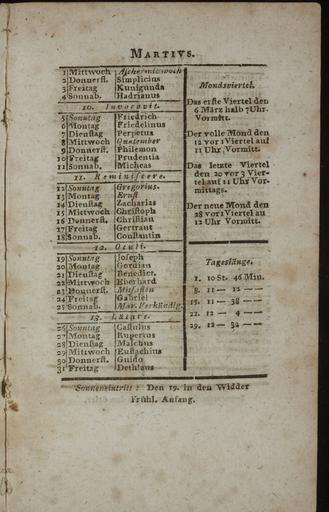 MARTIVS.
1 Mittwoch Aschermittwoch
2 Donnerst. Simplicius
3 Freitag Kunigunda
4 Sonnab. Hadrianus
10. Invocavit.
5 Sonntag Friedrich
6 Montag Friedelinus
7 Dienstag Perpetua
8 Mittwoch Quatember
9 Donnerst. Philemon
10 Freitag Prudentia
11 Sonnab. Micheas
11. Reminiscere.
12 Sonntag Gregorius.
13 Montag Ernst
14 Dienstag Zacharias
15 Mittwoch Christoph
16 Donnerst. Christian
17 Freitag Gertraut
18 Sonnab. Constantin
12. Oculi.
19 Sonntag Joseph
20 Montag Gordian
21 Dienstag Benedict.
22 Mittwoch Eberhard
23 Donnerst. Mitfasten
24 Freitag Gabriel
25 Sonnab. Mar. Verkündig.
13. Lätare.
26 Sonntag Castulus
27 Montag Rupertus
28 Dienstag Malchus
29 Mittwoch Eustachius
30 Donnerst. Guido
31 Freitag Detlaus
Mondsviertel.
Das erste Viertel den
6 März halb 7 Uhr.
Vormitt.
Der volle Mond den
12 vor 1 Viertel auf
11 Uhr Vormitt.
Das letzte Viertel
den 20 vor 3 Vier-
tel auf 11 Uhr Vor-
mittags.
Der neue Mond den
28 vor 1 Viertel au
12 Uhr Vormitt.
Tageslänge.
1. 10 St. 46 Min.
8. 11 — 12 — —
15. 11 — 38 — —
22. 12 — 4 — —
29. 12 — 32 — —
Sonneneintritt: Den 19. in den Widder
Frühl. Anfang.